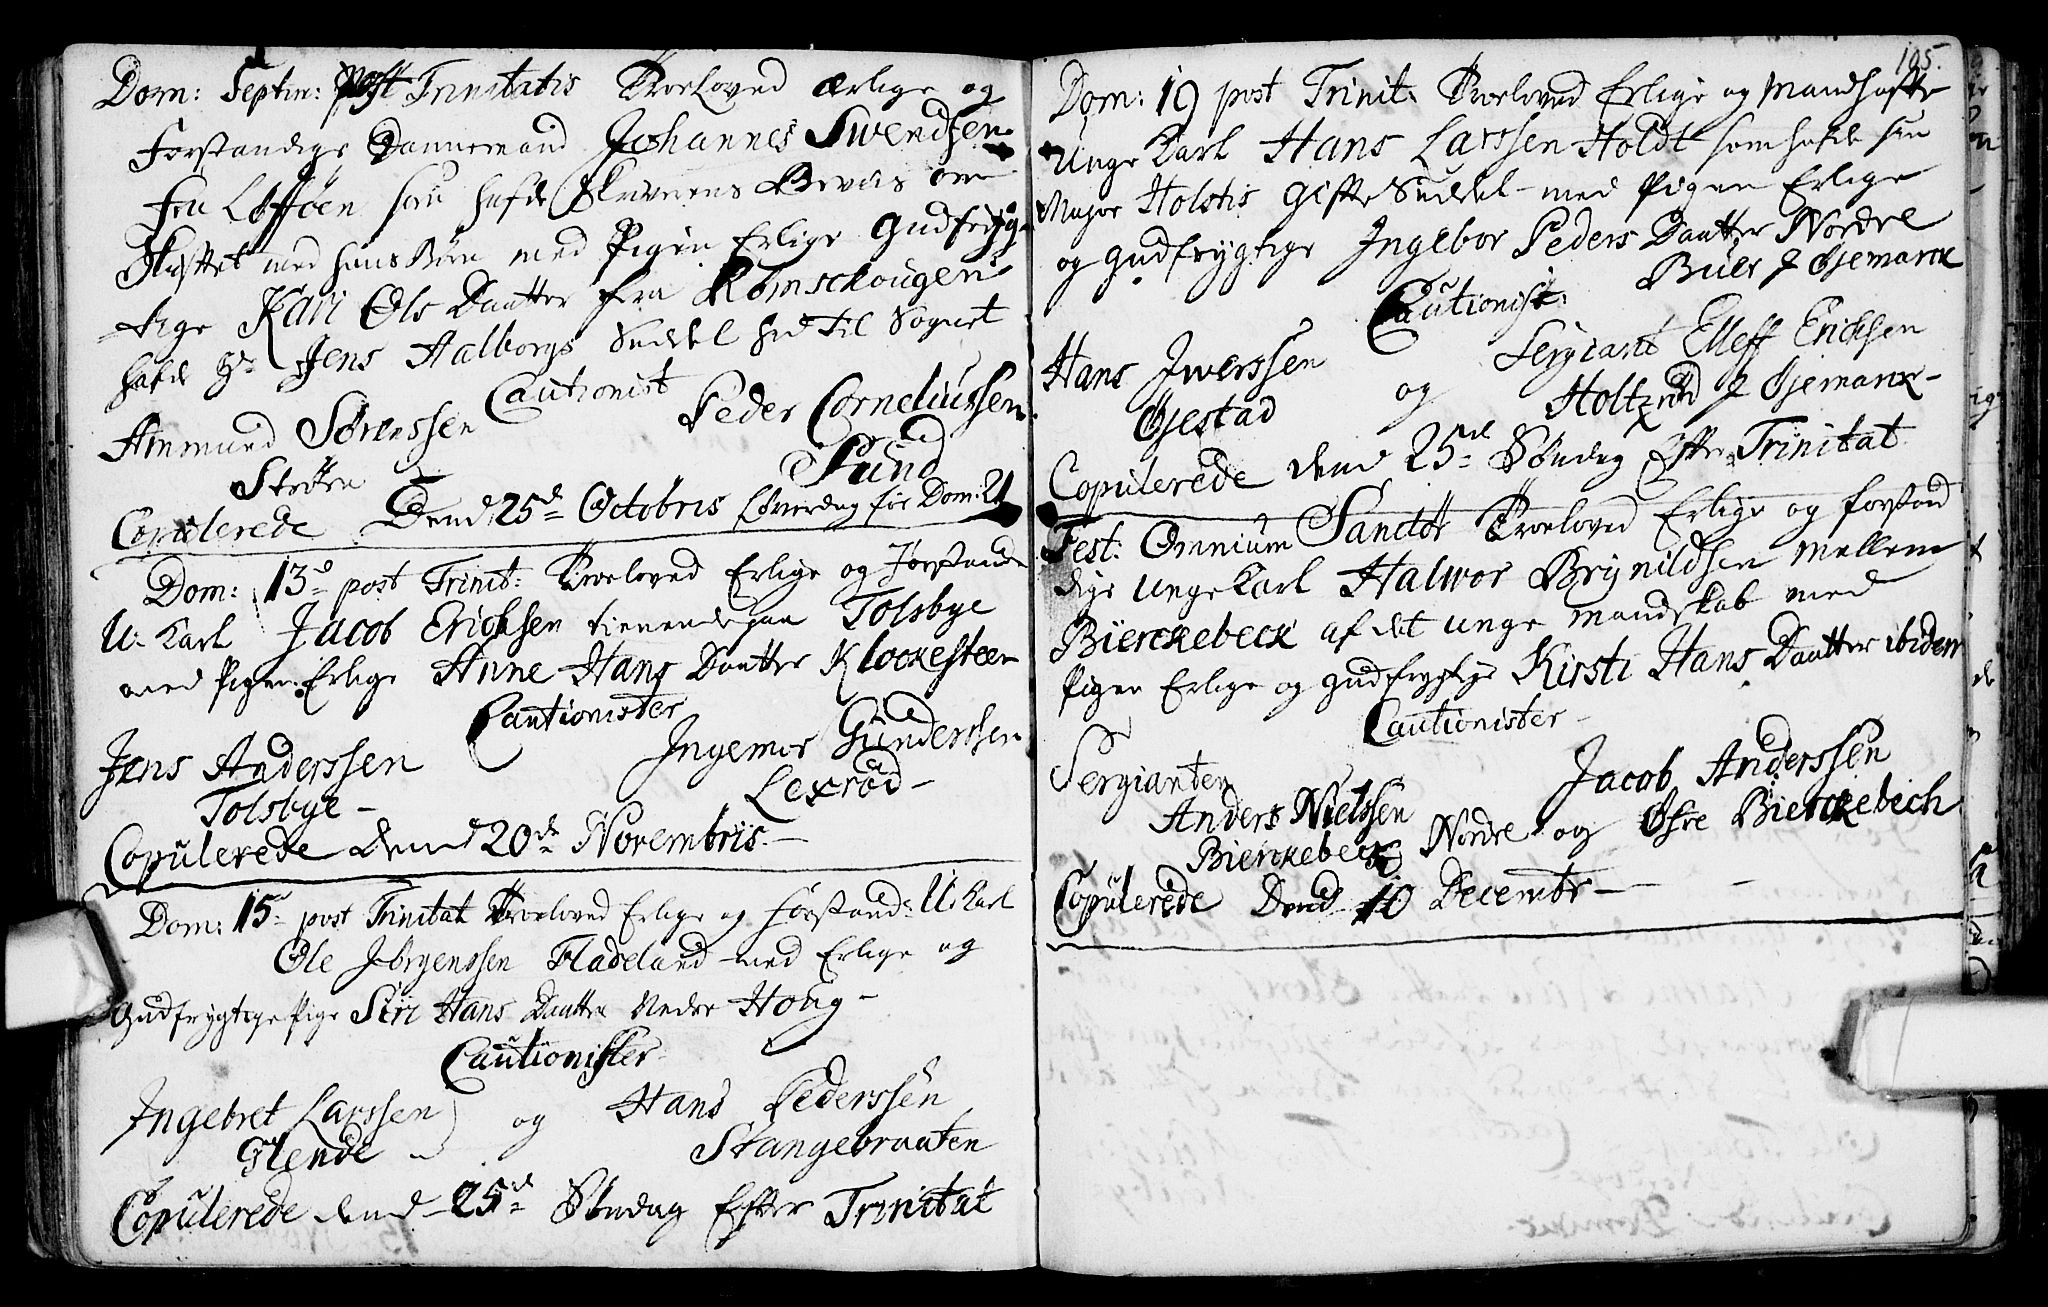 Dom: Septim: post Trinitatis Troeloved Ærlige og
Forstandige Dannemand Johannes Swendsen
fra Løfføen som hafde Skriverens Beviis om
Skiftet med hans Børn med Pigen Erlige Gudfrygt-
tige Kari Ols Daatter fra Römschougen
hafde Hr Jens Aalborgs Seddel hid til Sognet
Cautionist
Ammund Sörenssen Peder Corneliussen
Ströem Sund
Copulerede Dend 25de Octobris Löverdag för Dom: 21
Dom: 13de post Trinit: Troeloved Erlige og Forstand:
U: Karl Jacob Erichsen tienende paa Tolsbye
med Pigen Erlige Anne Hans Daatter Klockesteen
Cautionister
Jens Anderssen Ingemor Gunderssen
Tolsbye - Lexröd -
Copulerede dend 20de Novembris. -
Dom: 15de post Trinitat Troeloved Erlige og Forstand: U: Karl
Ole Jörgenssen Fladeland med Erlige og
Gudfrygtige Pige Siri Hans Daatter Nedre Houg -
Cautionister
Ingebret Larssen og Hans Pederssen
Flende Stangebraaten
Copulerede dend 25de Söndag Efter Trinitat
105.
Dom: 19 post Trinit: Troeloved Erlige og Mandhafte
Unge Karl Hans Larssen Holdt som hafde hr
Major Holstis Gifte Seddel med Pigen Erlige
og Gudfrygtige Ingebor Peders Daatter Nordre
Buer J Öjemarck
Cautionist:
Hans Iwerssen og Sergiant Elleff Erichsen
Öjestad Holtzröd J Öjemarck -
Copulerede dend 25de Söndag Efter Trinitat
Fest: Omnium Sanctor Troeloved Erlige og forstand
dige Unge Karl Halwor Brynildsen Mellem
Bierckebeck af det unge Mandskab med
Pigen Erlige og Gudfrygtige Kirsti Hans Daatter ibidem
Cautionister -
Sergianten Jacob Anderssen
Anders Nielssen
Bierckebeck Nordre og Östre Bierckebech
Copulerede Dend 10 Decembr -